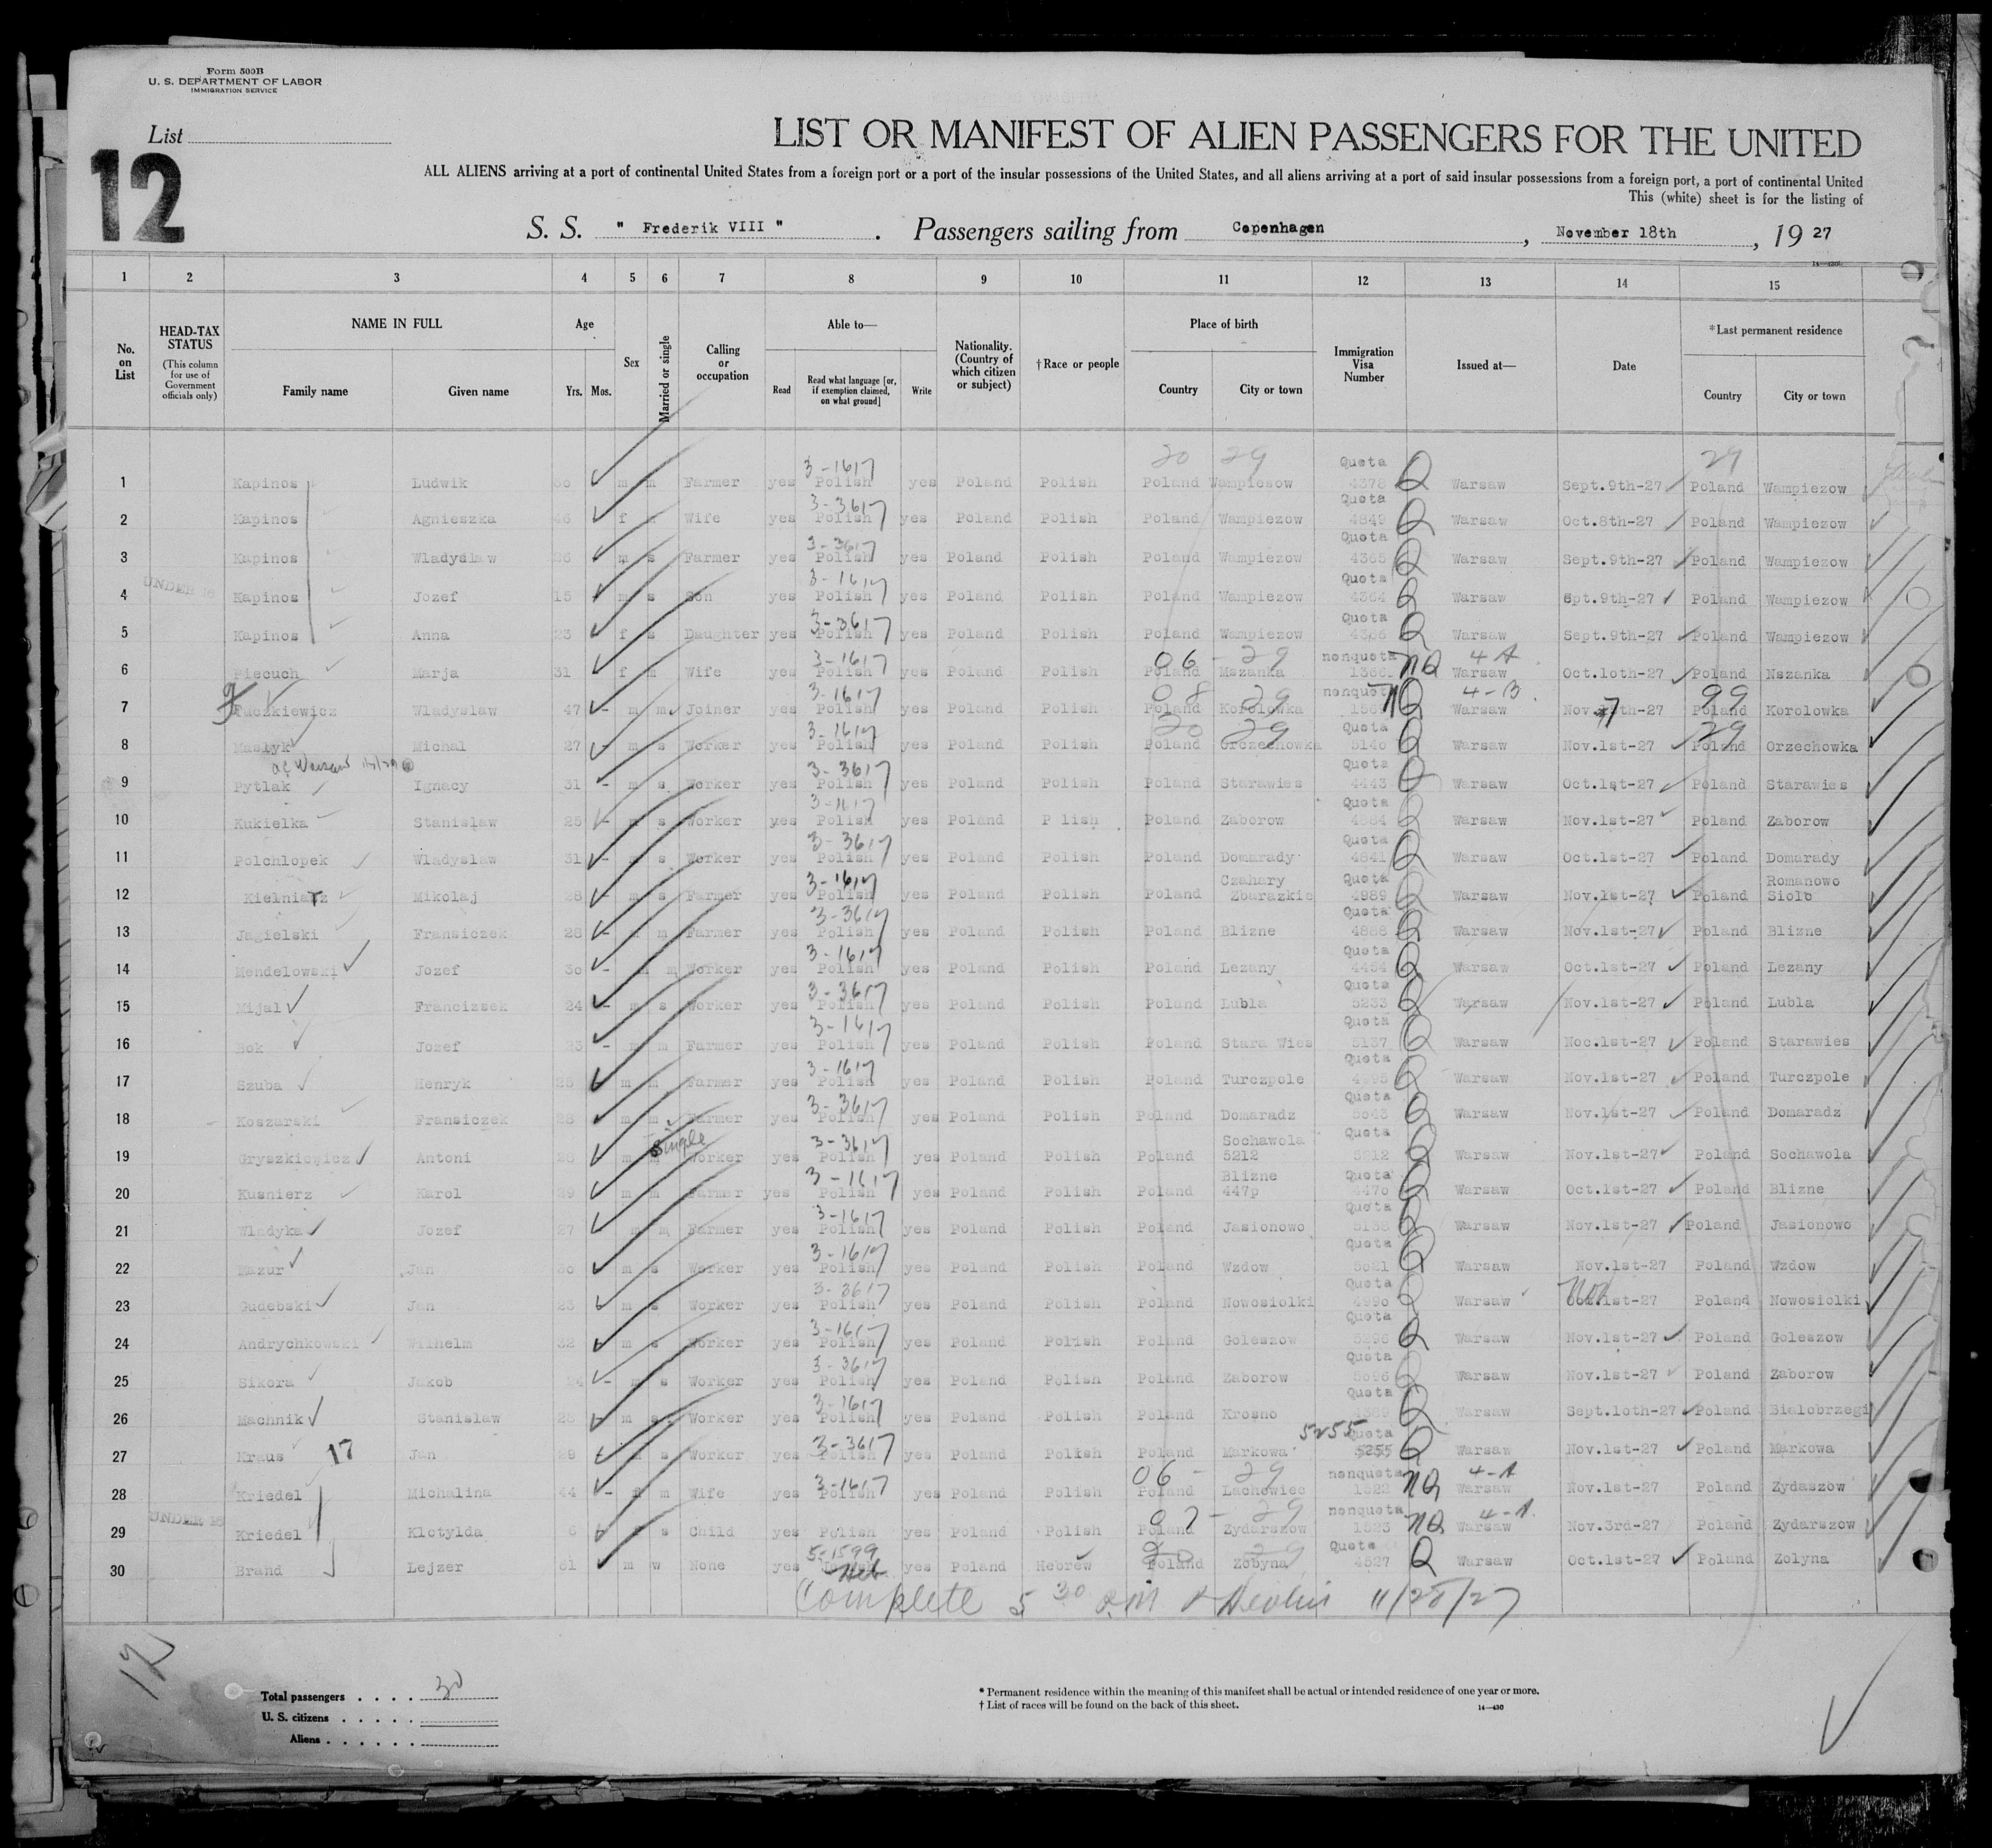 Form 500B
U. S. DEPARTMENT OF LABOR
IMMIGRATION SERVICE
List
12
LIST OR MANIFEST OF ALIEN PASSENGERS FOR THE UNITED
ALL ALIENS arriving at a port of continental United States from a foreign port or a port of the insular possessions of the United States, and all aliens arriving at a port of said insular possessions from a foreign port, a port of continental United
This (white) sheet is for the listing of
S. S. " Frederik VIII " . Passengers sailing from Copenhagen , November 18th , 19 27
1 2 3 4 5 6 7 8 9 10 11 12 13 14 15
No. on List
HEAD-TAX STATUS (This column for use of Government officials only)
NAME IN FULL Family name Given name
Age Yrs. Mos.
Sex
Married or single
Calling or occupation
Able to— Read Read what language [or, if exemption claimed, on what ground] Write
Nationality. (Country of which citizen or subject)
†Race or people
Place of birth Country City or town
Immigration Visa Number
Issued at—
Date
*Last permanent residence Country City or town
20 29 29
1 Kapinos Ludwik m m Farmer yes 3-1617 Polish yes Poland Polish Poland Wampiesow Quota 4378 Q Warsaw Sept.9th-27 Poland Wampiezow
2 Kapinos Agnieszka 46 f Wife yes 3-3617 Polish yes Poland Polish Poland Wampiezow Quota 4849 Q Warsaw Oct.8th-27 Poland Wampiezow
3 Kapinos Wladyslaw 26 m s Farmer yes 3-3617 Polish yes Poland Polish Poland Wampiezow Quota 4365 Q Warsaw Sept.9th-27 Poland Wampiezow
4 UNDER 16 Kapinos Jozef 15 m s Son yes 3-1617 Polish yes Poland Polish Poland Wampiezow Quota 4364 Q Warsaw Spt.9th-27 Poland Wampiezow
5 Kapinos Anna 23 f s Daughter yes 3-3617 Polish yes Poland Polish Poland Wampiezow Quota 4366 Q Warsaw Sept.9th-27 Poland Wampiezow
6 Piecuch Marja 31 f m Wife yes 3-1617 Polish yes Poland Polish 06 - 29 Poland Mszanka nonquota 1366 NQ 4 A Warsaw Oct.1oth-27 Poland Nszanka
7 Fuczkiewicz Wladyslaw 47 - m m Joiner yes 3-1617 Polish yes Poland Polish 08 29 Poland Korolowka nonquota NQ 4-B Warsaw Nov. 7th-27 99 Poland Korolowka
8 Maslyk Michal 27 - m s Worker yes 3-1617 Polish yes Poland Polish 20 29 Poland Orczechowka Quota 514o Q Warsaw Nov.1st-27 29 Poland Orzechowka
9 Pytlak Ignacy 31 - m s Worker yes 3-3617 Polish yes Poland Polish Poland Starawies Quota 4443 Q Warsaw Oct.1st-27 Poland Starawies
10 Kukielka Stanislaw 25 - m s Worker yes 3-1617 Polish yes Poland P lish Poland Zaborow Quota 4884 Q Warsaw Nov.1st-27 Poland Zaborow
11 Polchlopek Wladyslaw 31 - s Worker yes 3-3617 Polish yes Poland Polish Poland Domarady Quota 4841 Q Warsaw Oct.1st-27 Poland Domarady
12 Kielniarz Mikolaj 28 - m s Farmer yes 3-1617 Polish yes Poland Polish Poland Czahary Zbarazkie Quota 4989 Q Warsaw Nov.1st-27 Poland Romanowo Siolo
13 Jagielski Fransiczek 28 - m Farmer yes 3-3617 Polish yes Poland Polish Poland Blizne Quota 4888 Q Warsaw Nov.1st-27 Poland Blizne
14 Mendelowski Jozef 3o - m Worker yes 3-1617 Polish yes Poland Polish Poland Lezany Quota 4454 Q Warsaw Oct.1st-27 Poland Lezany
15 Mijal Francizsek 24 - m s Worker yes 3-3617 Polish yes Poland Polish Poland Lubla Quota 5233 Q Warsaw Nov.1st-27 Poland Lubla
16 Bok Jozef 23 - m m Farmer yes 3-1617 Polish yes Poland Polish Poland Stara Wies Quota 5137 Q Warsaw Noc.1st-27 Poland Starawies
17 Szuba Henryk 25 m m Farmer yes 3-1617 Polish yes Poland Polish Poland Turczpole Quota 4995 Q Warsaw Nov.1st-27 Poland Turczpole
18 Koszarski Fransiczek 28 m m Farmer yes 3-3617 Polish yes Poland Polish Poland Domaradz Quota 5043 Q Warsaw Nov.1st-27 Poland Domaradz
19 Gryszkiewicz Antoni 28 m single Worker yes 3-3617 Polish yes Poland Polish Poland Sochawola 5212 Quota 5212 Q Warsaw Nov.1st-27 Poland Sochawola
20 Kusnierz Karol 29 m m Farmer yes 3-1617 Polish yes Poland Polish Poland Blizne 447p Quota 447o Q Warsaw Oct.1st-27 Poland Blizne
21 Wladyka Jozef 27 m m Farmer yes 3-1617 Polish yes Poland Polish Poland Jasionowo Quota 5138 Q Warsaw Nov.1st-27 Poland Jasionowo
22 Mazur Jan 3o m s Worker yes 3-1617 Polish yes Poland Polish Poland Wzdow Quota 5021 Q Warsaw Nov.1st-27 Poland Wzdow
23 Gudebski Jan 23 m s Worker yes 3-3617 Polish yes Poland Polish Poland Nowosiolki Quota 499o Q Warsaw Nov Oct.1st-27 Poland Nowosiolki
24 Andrychkowski Wilhelm 32 m s Worker yes 3-1617 Polish yes Poland Polish Poland Goleszow Quota 5296 Q Warsaw Nov.1st-27 Poland Goleszow
25 Sikora Jakob 24 - m s Worker yes 3-3617 Polish yes Poland Polish Poland Zaborow Quota 5096 Q Warsaw Nov.1st-27 Poland Zaborow
26 Machnik Stanislaw 25 m s Worker yes 3-1617 Polish yes Poland Polish Poland Krosno Quota 4389 Q Warsaw Sept.1oth-27 Poland Bialobrzegi
27 Kraus 17 Jan 29 s Worker yes 3-3617 Polish yes Poland Polish Poland Markowa 5255 Quota 5255 Q Warsaw Nov.1st-27 Poland Markowa
28 Kriedel Michalina 44 - f m Wife yes 3-1617 Polish yes Poland Polish 06 - 29 Poland Lachowiec nonquota 1522 NQ 4-A Warsaw Nov.1st-27 Poland Zydaszow
29 UNDER 16 Kriedel Klotylda 6 f s Child yes Polish yes Poland Polish 07 - 29 Poland Zydarszow nonquota 1523 NQ 4-A. Warsaw Nov.3rd-27 Poland Zydarszow
30 Brand Lejzer 61 m w None yes 5-1599 Heb yes Poland Hebrew 20 29 Poland Zobyna Quota 4527 Q Warsaw Oct.1st-27 Poland Zolyna
Complete 5 30 P.M 11/28/27
12
Total passengers . . . . 30
U. S. citizens . . . . .
Aliens . . . . . .
* Permanent residence within the meaning of this manifest shall be actual or intended residence of one year or more.
† List of races will be found on the back of this sheet.
14—430